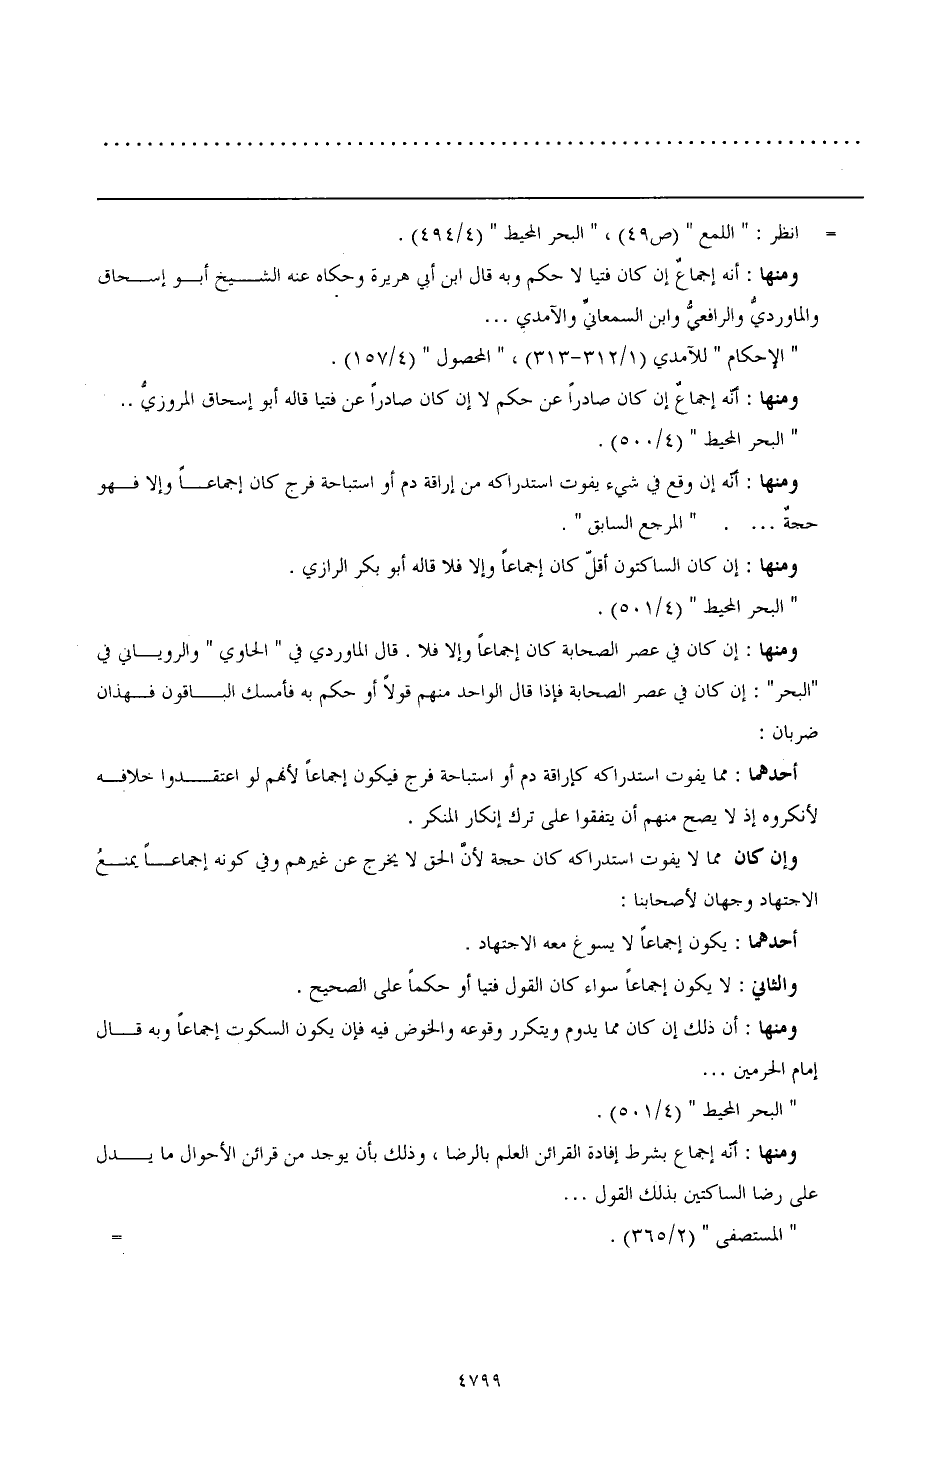 = انظر : " اللمع " (ص٤٩) ، " البحر المحيط " (٤٩٤/٤) .
ومنها : أنه إجماعٌ إن كان فتيا لا حكم وبه قال ابن أبي هريرة وحكاه عنه الشيخ أبو إسحاق
والماورديُّ والرافعيُّ وابن السمعانيِّ والآمدي ...
" الإحكام " للآمدي (٣١٢/١-٣١٣) ، " المحصول " (١٥٧/٤) .
ومنها : أنّه إجماعٌ إن كان صادراً عن حكم لا إن كان صادراً عن فتيا قاله أبو إسحاق المروزيُّ ..
" البحر المحيط " (٥٠٠/٤) .
ومنها : أنّه إن وقع في شيء يفوت استدراكه من إراقة دم أو استباحة فرج كان إجماعاً وإلا فهو
حجةٌ ... . " المرجع السابق " .
ومنها : إن كان الساكتون أقلّ كان إجماعاً وإلا فلا قاله أبو بكر الرازي .
" البحر المحيط " (٥٠١/٤) .
ومنها : إن كان في عصر الصحابة كان إجماعاً وإلا فلا . قال الماوردي في " الحاوي " والروياني في
"البحر" : إن كان في عصر الصحابة فإذا قال الواحد منهم قولاً أو حكم به فأمسك الباقون فهذان
ضربان :
أحدهما : مما يفوت استدراكه كإراقة دم أو استباحة فرج فيكون إجماعاً لأنهم لو اعتقدوا خلافه
لأنكروه إذ لا يصح منهم أن يتفقوا على ترك إنكار المنكر .
وإن كان مما لا يفوت استدراكه كان حجة لأنَّ الحق لا يخرج عن غيرهم وفي كونه إجماعاً يمنعُ
الاجتهاد وجهان لأصحابنا :
أحدهما : يكون إجماعاً لا يسوغ معه الاجتهاد .
والثاني : لا يكون إجماعاً سواء كان القول فتيا أو حكماً على الصحيح .
ومنها : أن ذلك إن كان مما يدوم ويتكرر وقوعه والخوض فيه فإن يكون السكوت إجماعاً وبه قال
إمام الحرمين ...
" البحر المحيط " (٥٠١/٤) .
ومنها : أنّه إجماع بشرط إفادة القرائن العلم بالرضا ، وذلك بأن يوجد من قرائن الأحوال ما يدل
على رضا الساكتين بذلك القول ...
" المستصفى " (٣٦٥/٢) . =
٤٧٩٩